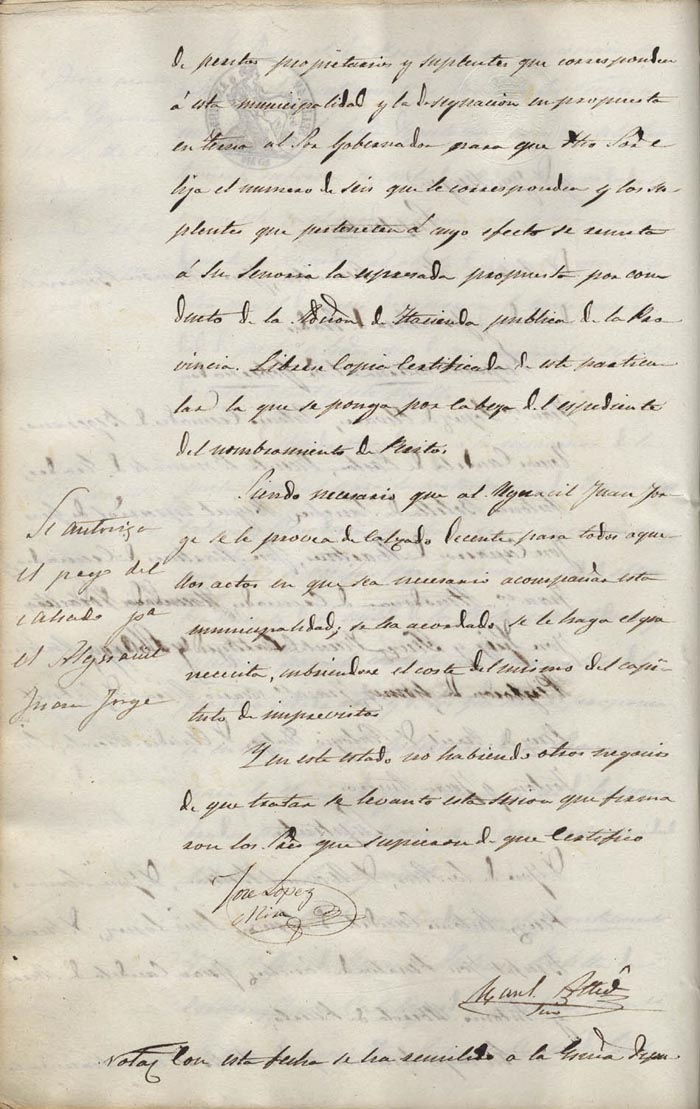 de peritos propietarios y suplentes que corresponden
á esta municipalidad y la designacion en propuesta
en terna al Sor Gobernador para que dho Sor e-
lija el numero de seis que le corresponden y los su-
plentes que pertenecen á cuyo efecto se remita
á Su Señoria la espresada propuesta por con-
ducto de la de Hacienda publica de la Pro
vincia. Librese Copia Certificada de este particu
lar la que se ponga por Cabeza del espediente
del nombramiento de Peritos
Siendo necesario que al Alguacil Juan Jor
ge se le provea de Calzado decente para todos aque-
llos actos en que sea necesario acompañar esta
municipalidad; se ha acordado se le haga el que
necesita, cubriendose el coste del mismo del capi-
tulo de imprevistos
Se autoriza
el pago del
calzado pa
el Alguacil
Juan Jorge
Y en este estado no habiendo otros negocios
de que tratar se levanto esta sesion que firma
ron los Sres que supieron de que Certifico
Jose Lopez
Manl.
Srio
Nota Con esta fecha se ha remitido a la